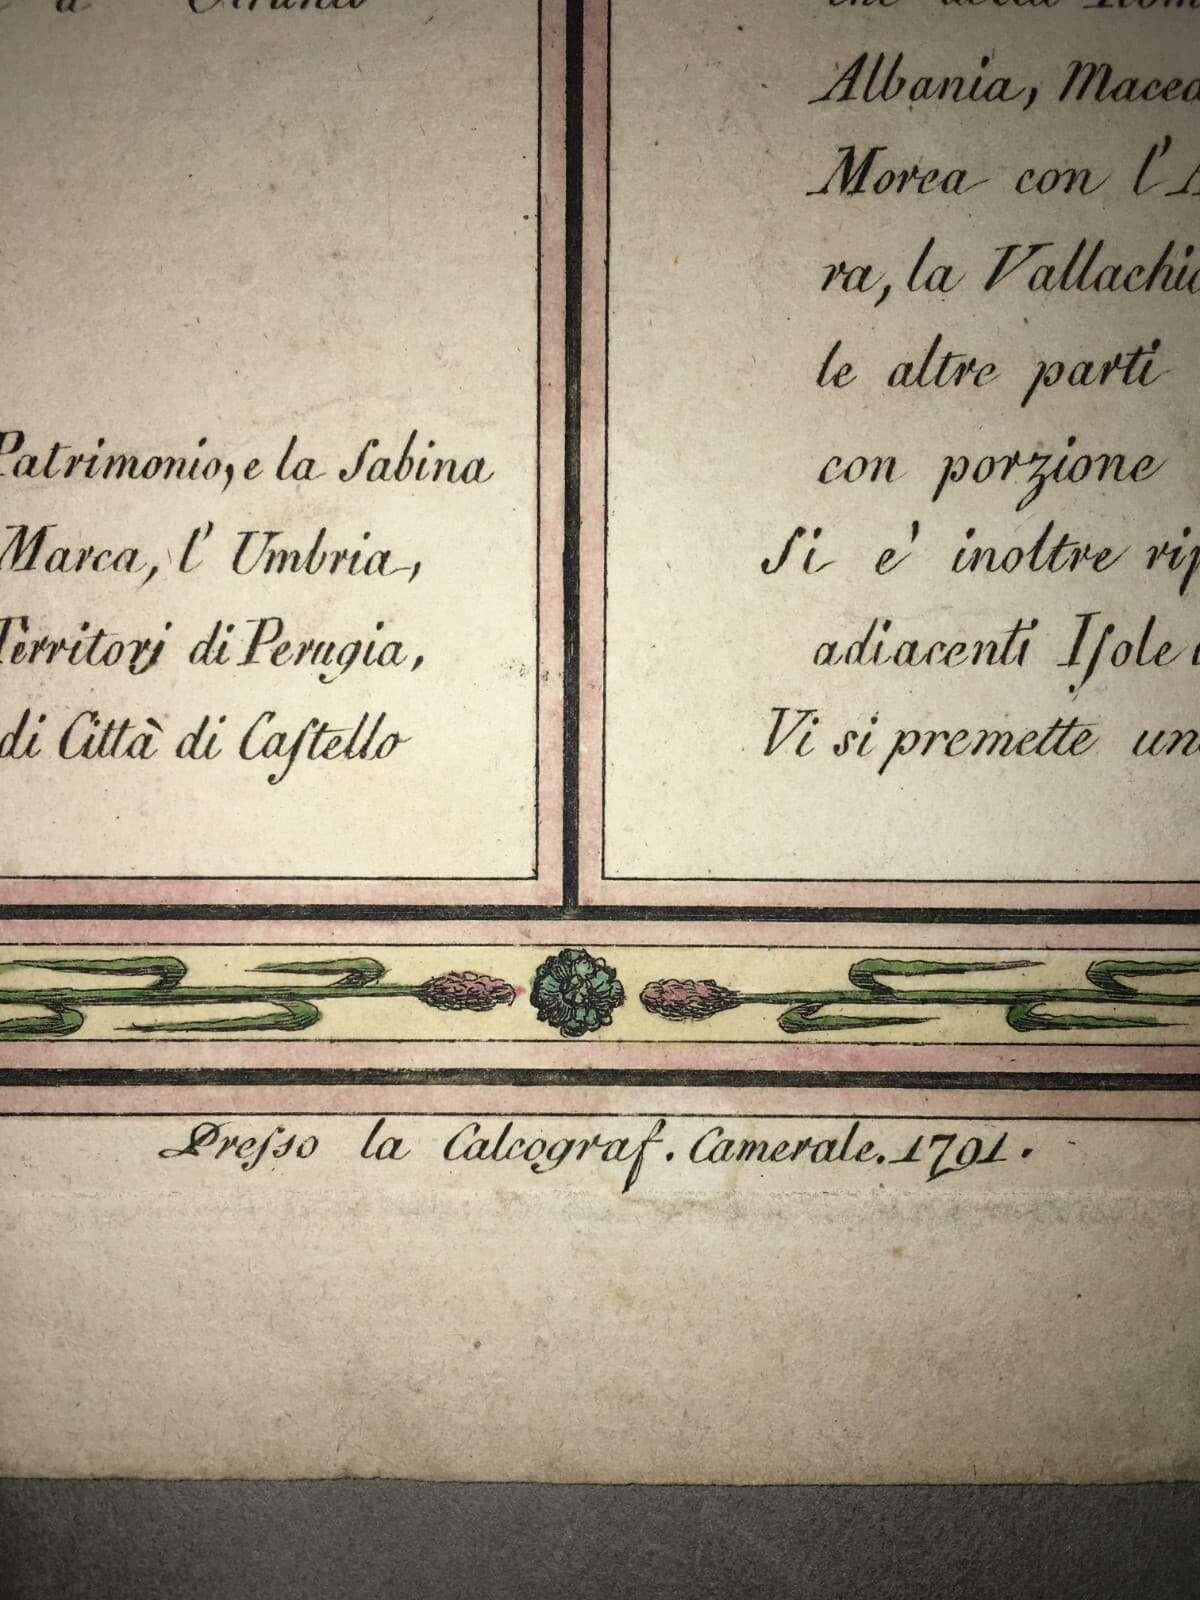 Patrimonio, e la Sabina
Marca, l' Umbria,
Territorj di Perugia,
di Città di Caſtello
Albania,
Morea con l'
ra, la
le altre parti
con porzione
Si e' inoltre
adiacenti Iſole
Vi si premette
Preſso la Calcograf. Camerale. 1791.